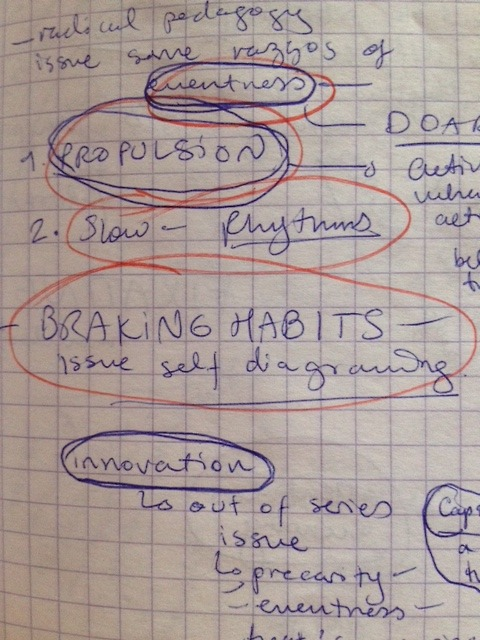 - radical pedagogy
issue some of
eventness -
DOAR
1. PROPULSION
2. Slow - Rhythms
- BRAKING HABITS -
issue self diagramming
innovation
out of series
issue
precarity -
- eventness -
Caps
a